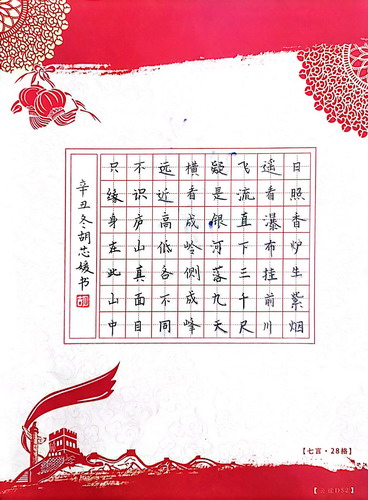 日照香炉生紫烟
遥看瀑布挂前川
飞流直下三千尺
疑是银河落九天
横看成岭侧成峰
远近高低各不同
不识庐山真面目
只缘身在此山中
辛丑冬胡芯媛书
【七言·28格】